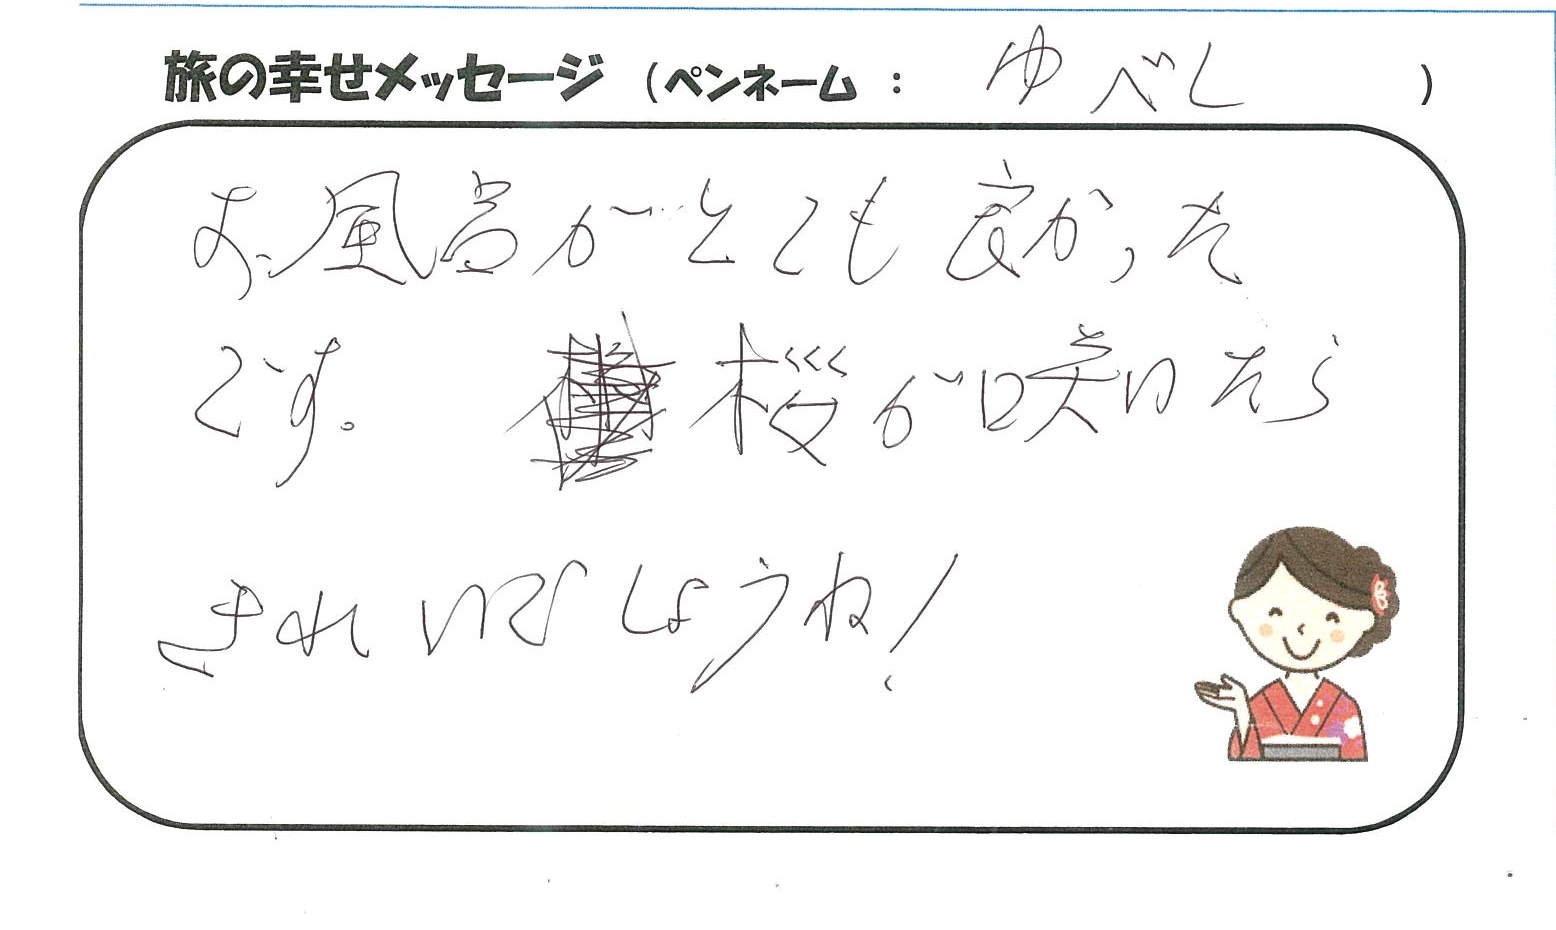 旅の幸せメッセージ (ペンネーム : ゆべし )
お風呂がとても良かった
です。 桜が咲いたら
きれいでしょうね!